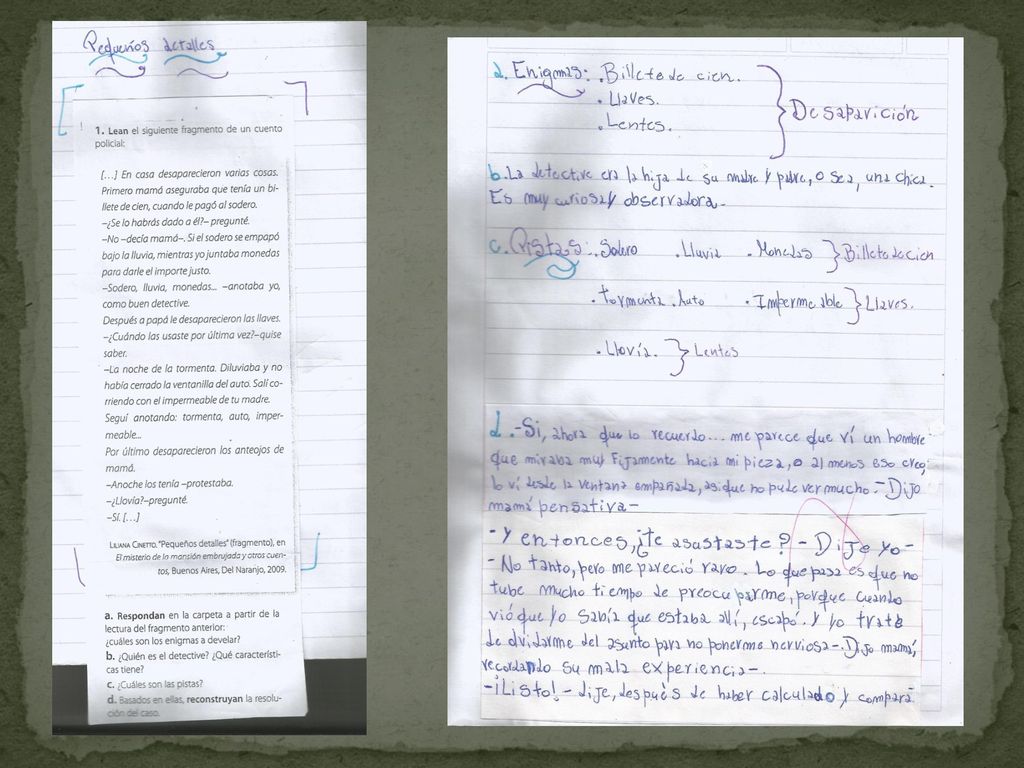 Pequeños detalles
1. Lean el siguiente fragmento de un cuento
policial:
[…] En casa desaparecieron varias cosas.
Primero mamá aseguraba que tenía un bi-
llete de cien, cuando le pagó al sodero.
–¿Se lo habrás dado a él?– pregunté.
–No –decía mamá–. Si el sodero se empapó
bajo la lluvia, mientras yo juntaba monedas
para darle el importe justo.
–Sodero, lluvia, monedas... –anotaba yo,
como buen detective.
Después a papá le desaparecieron las llaves.
–¿Cuándo las usaste por última vez?–quise
saber.
–La noche de la tormenta. Diluviaba y no
había cerrado la ventanilla del auto. Salí co-
rriendo con el impermeable de tu madre.
Seguí anotando: tormenta, auto, imper-
meable...
Por último desaparecieron los anteojos de
mamá.
–Anoche los tenía –protestaba.
–¿Llovía?–pregunté.
–Sí. […]
LILIANA CINETTO. "Pequeños detalles" (fragmento), en
El misterio de la mansión embrujada y otros cuen-
tos, Buenos Aires, Del Naranjo, 2009.
a. Respondan en la carpeta a partir de la
lectura del fragmento anterior:
¿cuáles son los enigmas a develar?
b. ¿Quién es el detective? ¿Qué característi-
cas tiene?
c. ¿Cuáles son las pistas?
d. Basados en ellas, reconstruyan la resolu-
ción del caso.
a. Enigmas: . Billete de cien.
. Llaves.
. Lentes.
Desaparición
b. La detective era la hija de su madre y padre, o sea, una chica.
Es muy curiosa y observadora.
c. Pistas: . Sodero . Lluvia . Monedas } Billete de cien
. Tormenta . Auto . Impermeable } Llaves.
. Llovía. } Lentes
d. -Si, ahora que lo recuerdo... me parece que ví un hombre
que miraba muy fijamente hacia mi pieza, o al menos eso creo;
lo ví desde la ventana empañada, asi que no pude ver mucho.- Dijo
mamá pensativa-
- Y entonces, ¿te asustaste? - Dije yo-
- No tanto, pero me pareció raro. Lo que pasa es que no
tube mucho tiempo de preocuparme, porque cuando
vió que yo sabía que estaba allí, escapó. Y yo traté
de olvidarme del asunto para no ponerme nerviosa -. Dijo mamá,
recordando su mala experiencia-.
-¡Listo! - dije, después de haber calculado y compara